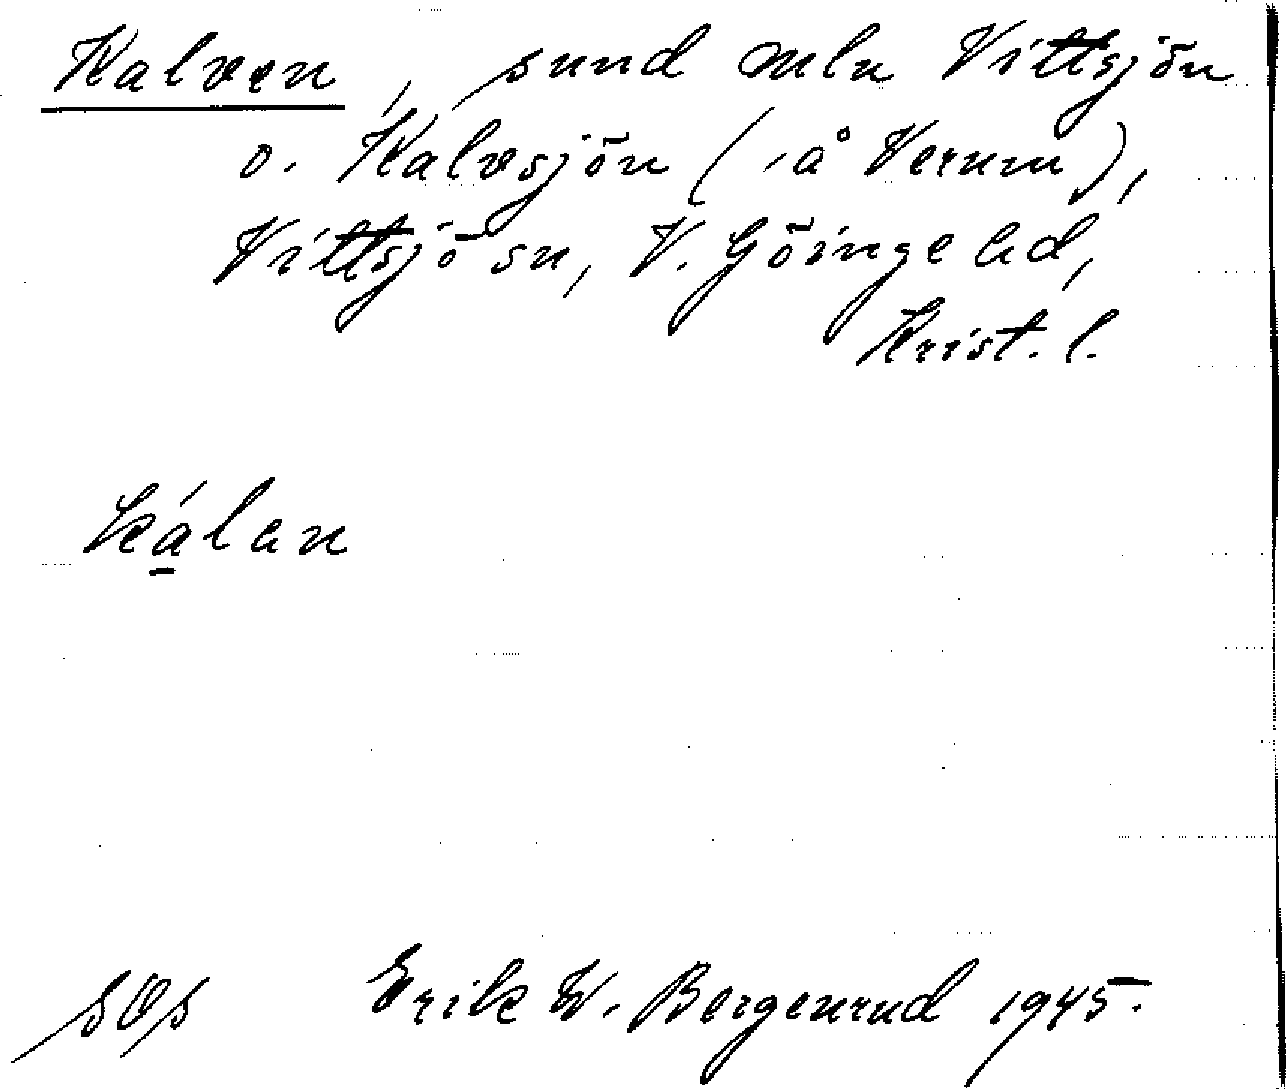 Kalven, sund mln Vittsjön
o. Kalvsjön (i å Verum),
Vittsjö sn, V. Göinge hd,
Krist. l.
kálan
SOS Erik W. Bergenrud 1945.